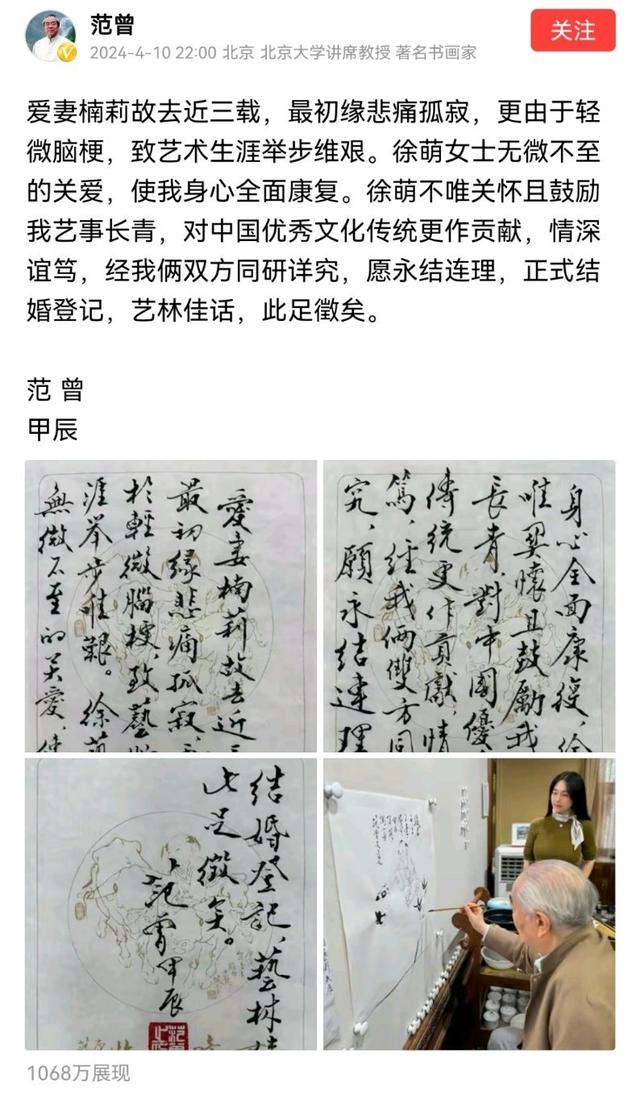 范曾
关注
2024-4-10 22:00 北京 北京大学讲席教授 著名书画家
爱妻楠莉故去近三载，最初缘悲痛孤寂，更由于轻
微脑梗，致艺术生涯举步维艰。徐萌女士无微不至
的关爱，使我身心全面康复。徐萌不唯关怀且鼓励
我艺事长青，对中国优秀文化传统更作贡献，情深
谊笃，经我俩双方同研详究，愿永结连理，正式结
婚登记，艺林佳话，此足徵矣。
范 曾
甲辰
愛妻楠莉故去近三
最初缘悲痛孤寂，
於輕微腦梗，致藝
涯举步唯艱。徐萌
無微不至的关愛，使
身心全面康復，徐
唯関懷且鼓勵我
長青，對中國優
傳統更作貢獻，情
篤，经我俩雙方同
究，願永结連理
结婚登记，藝林佳
此足徵矣。
范曾甲辰
1068万展现